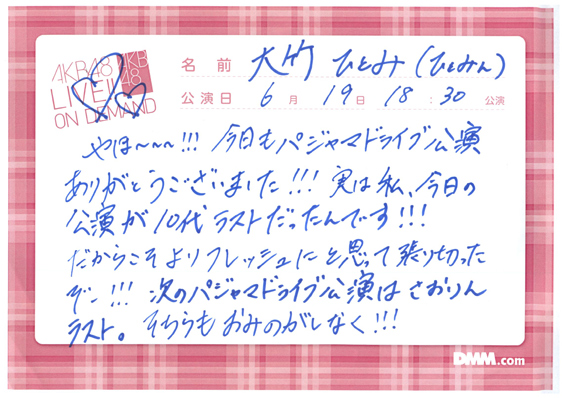 AKB48 AKB48
LIVE!!
ON DEMAND
名前 大竹 ひとみ(ひとみん)
公演日 6月 19日 18:30 公演
やほ〜〜〜!!! 今日もパジャマドライブ公演
ありがとうございました!!! 実は私、今日の
公演が10代ラストだったんです!!!
だからこそよりフレッシュにと思って張り切った
ぞー!!! 次のパジャマドライブ公演はさおりん
ラスト。そちらもおみのがしなく!!!
DMM.com